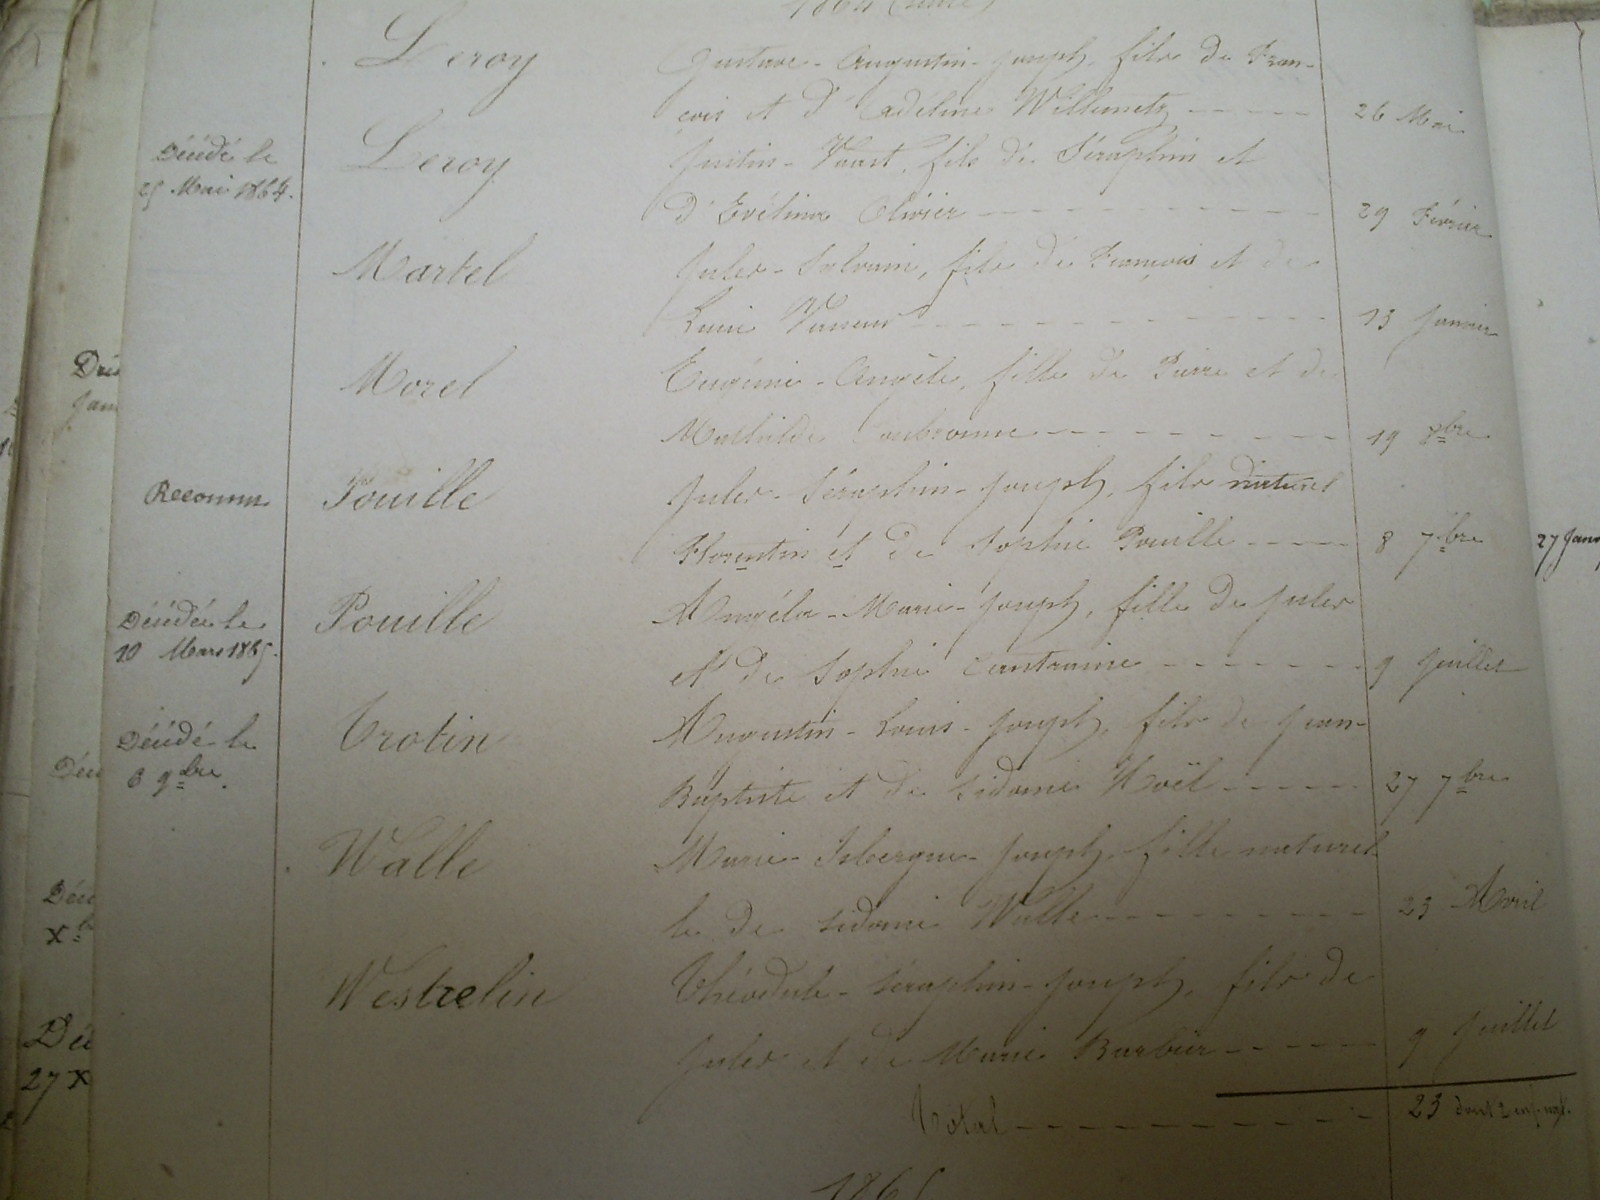 1864 (suite)
Leroy Gustave-Augustin-Joseph, fils de Fran-
çois et d'Adéline Willemetz 26 Mai
Décédé le Leroy Justin-Vaast, fils de Séraphin et
25 Mai 1864. d'Evélina Olivier 29 Février
Martel Jules-Sylvain, fils de François et de
Lucie Vasseur 13 Janvier
Morel Eugénie-Angèle, fille de Pierre et de
Mathilde 19 8bre
Reconnu Pouille Jules-Séraphin-Joseph, fils naturel
Florentin et de Sophie Pouille 8 7bre
Décédée le Pouille Angéla-Marie-Joseph, fille de Jules
10 Mars 1865. et de Sophie Cantraine 9 Juillet
Décédé le Trotin Augustin-Louis-Joseph, fils de Jean-
6 9bre. Baptiste et de Sidonie Noël 27 7bre
Walle Marie-Isbergue-Joseph, fille naturel-
le de Sidonie Walle 23 Avril
Westrelin Théodule-Séraphin-Joseph, fils de
Jules et de Marie Barbier 9 Juillet
Total 23 dont 2 enf. nat.
27 Janv
27 X